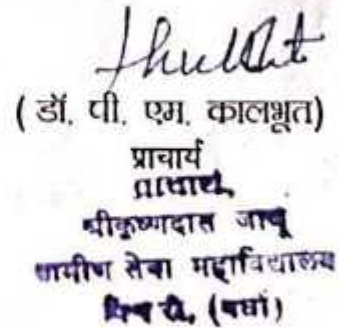 ( डॉ. पी. एम. कालभूत)
प्राचार्य
प्राचार्य,
श्रीकृष्णदास जाजू
ग्रामीण सेवा महाविद्यालय
(वर्धा)